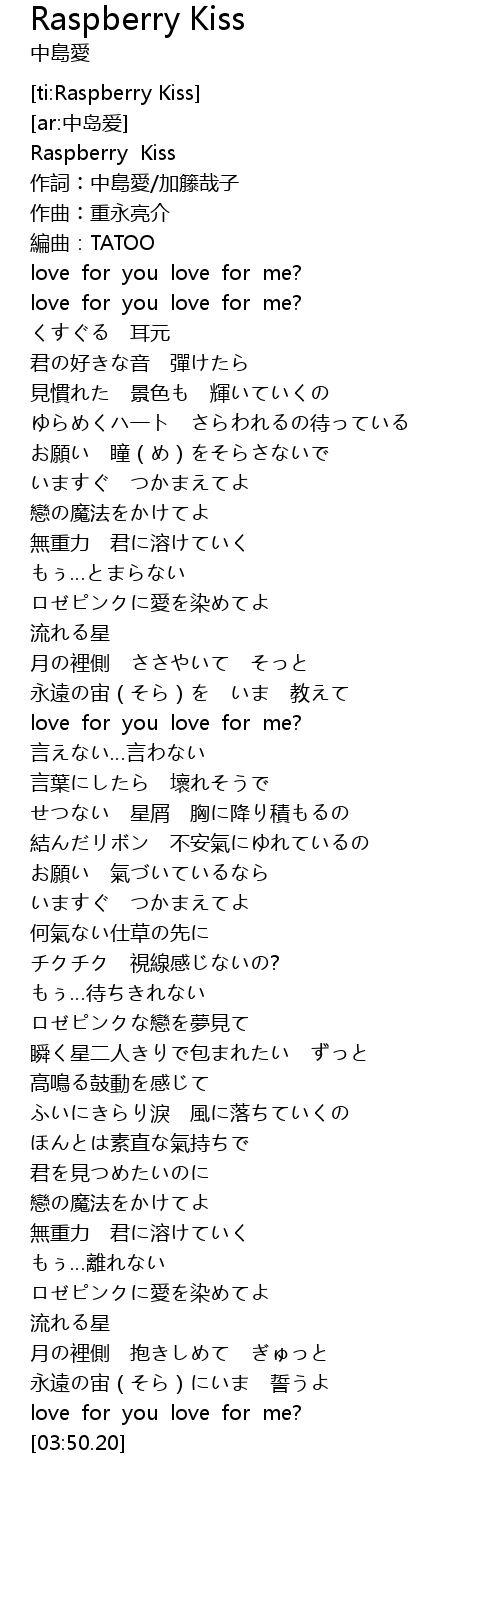 Raspberry Kiss
中島愛
[ti:Raspberry Kiss]
[ar:中岛爱]
Raspberry  Kiss
作詞：中島愛/加籐哉子
作曲：重永亮介
編曲：TATOO
love  for  you  love  for  me?
love  for  you  love  for  me?
くすぐる　耳元
君の好きな音　彈けたら
見慣れた　景色も　輝いていくの
ゆらめくハート　さらわれるの待っている
お願い　瞳（め）をそらさないで
いますぐ　つかまえてよ
戀の魔法をかけてよ
無重力　君に溶けていく
もぅ…とまらない
ロゼピンクに愛を染めてよ
流れる星
月の裡側　ささやいて　そっと
永遠の宙（そら）を　いま　教えて
love  for  you  love  for  me?
言えない…言わない
言葉にしたら　壞れそうで
せつない　星屑　胸に降り積もるの
結んだリボン　不安氣にゆれているの
お願い　氣づいているなら
いますぐ　つかまえてよ
何氣ない仕草の先に
チクチク　視線感じないの?
もぅ…待ちきれない
ロゼピンクな戀を夢見て
瞬く星二人きりで包まれたい　ずっと
高鳴る鼓動を感じて
ふいにきらり淚　風に落ちていくの
ほんとは素直な氣持ちで
君を見つめたいのに
戀の魔法をかけてよ
無重力　君に溶けていく
もぅ…離れない
ロゼピンクに愛を染めてよ
流れる星
月の裡側　抱きしめて　ぎゅっと
永遠の宙（そら）にいま　誓うよ
love  for  you  love  for  me?
[03:50.20]